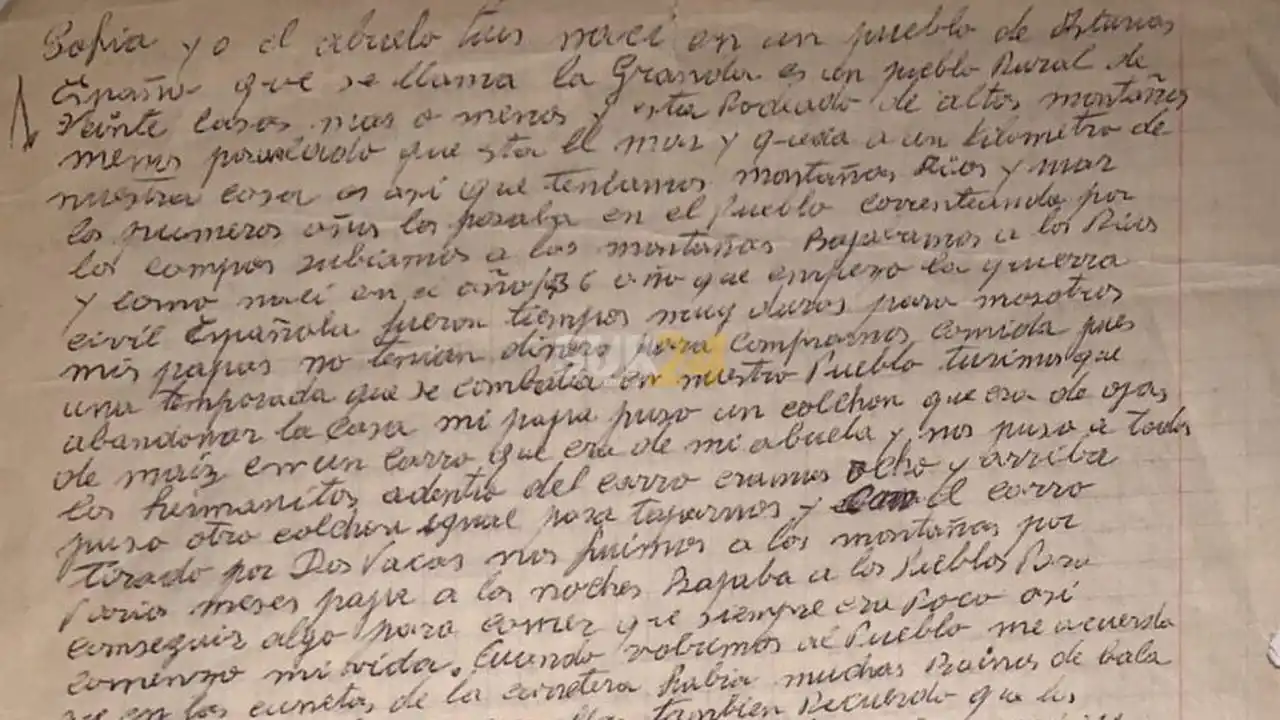 Sofia yo el abuelo luis naci en un pueblo de Asturias
España que se llama la Granda es un pueblo Rural de
Veinte casas mas o menos y esta Rodiado de altos montañas
menos por un lado que esta el mar y queda a un kilometro de
nuestra casa es asi que teniamos montañas Rios y mar
los primeros años los pasaba en el Pueblo correteando por
los campos subiamos a los montañas Bajavamos a los Rios
y como naci en el año 1936 año que empezo la guerra
civil Española fueron tiempos muy duros para nosotros
mis papas no tenian dinero para comprarnos comida pues
una temporada que se combatia en nuestro Pueblo tuvimos que
abandonar la casa mi papa puso un colchon que era de ojas
de maiz en un carro que era de mi abuela y nos puso a todos
los hermanitos adentro del carro eramos ocho y arriba
puso otro colchon igual para taparnos y el carro
tirado por Dos Vacas nos fuimos a los montañas por
Varios meses papa a los noches Bajaba a los Pueblos Para
conseguir algo para comer que siempre era Poco asi
comenzo mi vida. Cuando volvimos al Pueblo me acuerdo
que en las cunetas de la carretera Habia muchas Bainas de bala
tambien Recuerdo que los